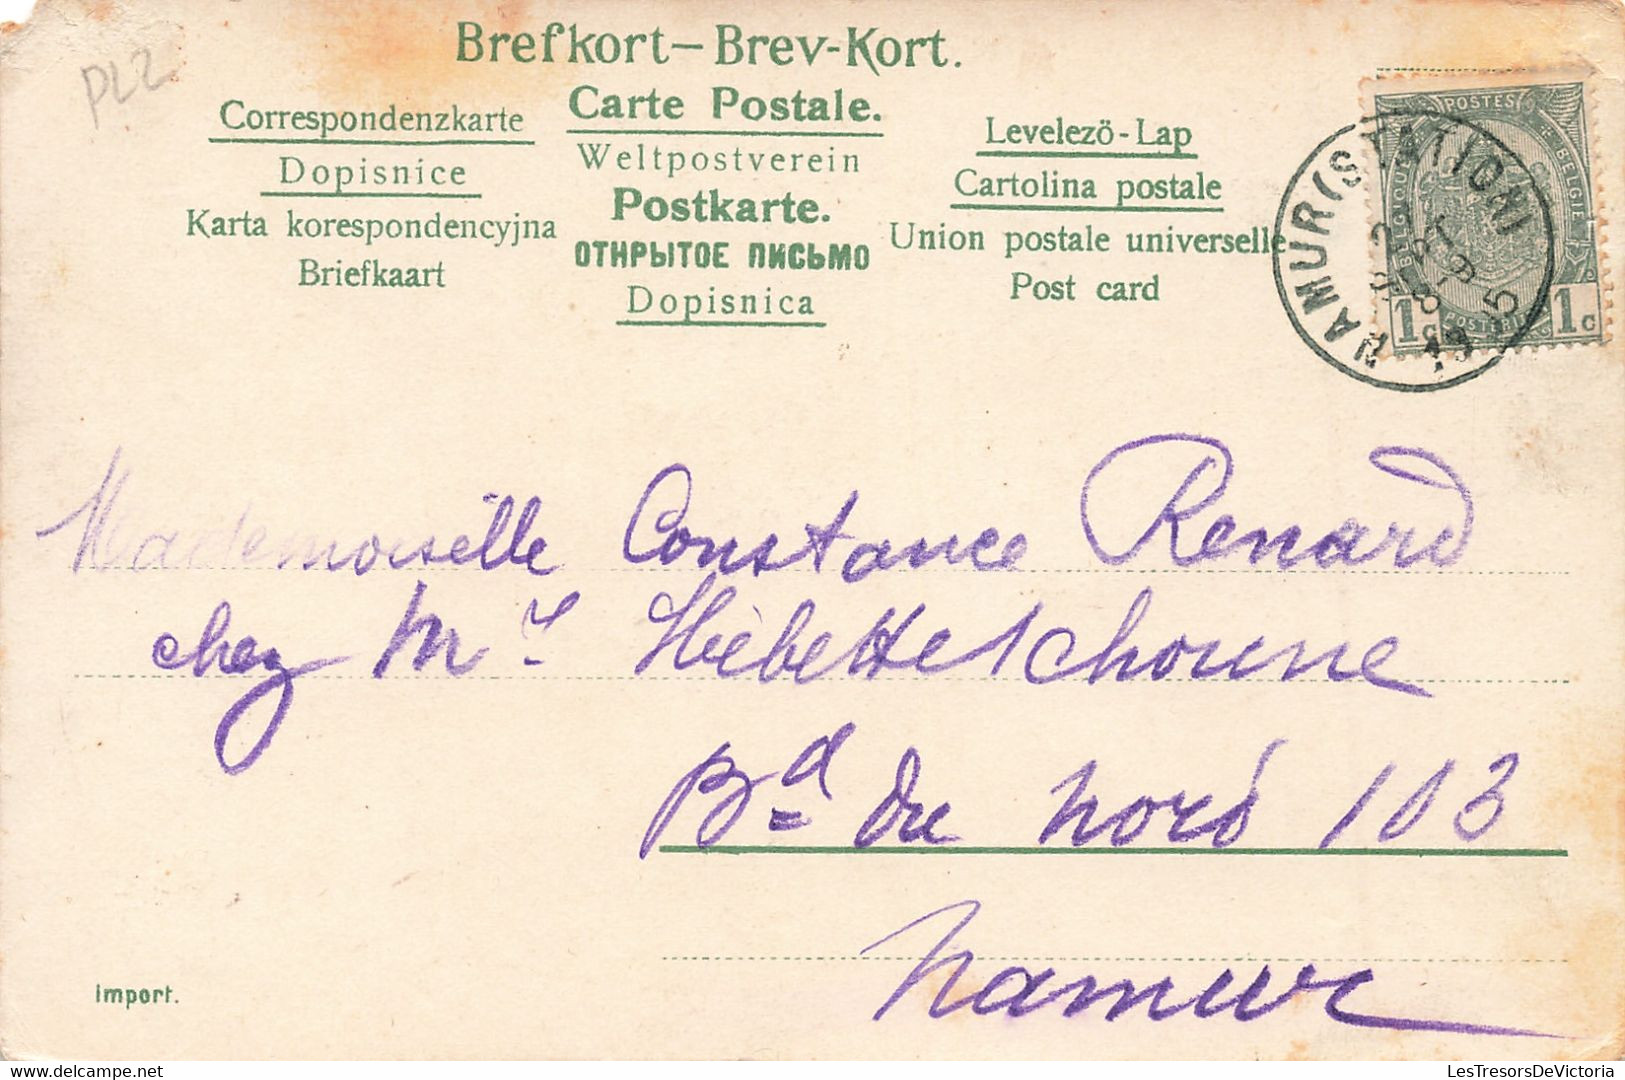 PLZ
Brefkort—Brev-Kort.
Correspondenzkarte
Dopisnice
Karta korespondencyjna
Briefkaart
Carte Postale.
Weltpostverein
Postkarte.
ОТКРЫТОЕ ПИСЬМО
Dopisnica
Levelező-Lap
Cartolina postale
Union postale universelle
Post card
POSTES
BELGIQUE BELGIË
1c POSTERIJEN 1c
NAMUR (STATION)
Mademoiselle Constance Renard
chez Mr
Bd du nord 103
Namur
Import.
LesTresorsDeVictoria
www.delcampe.net